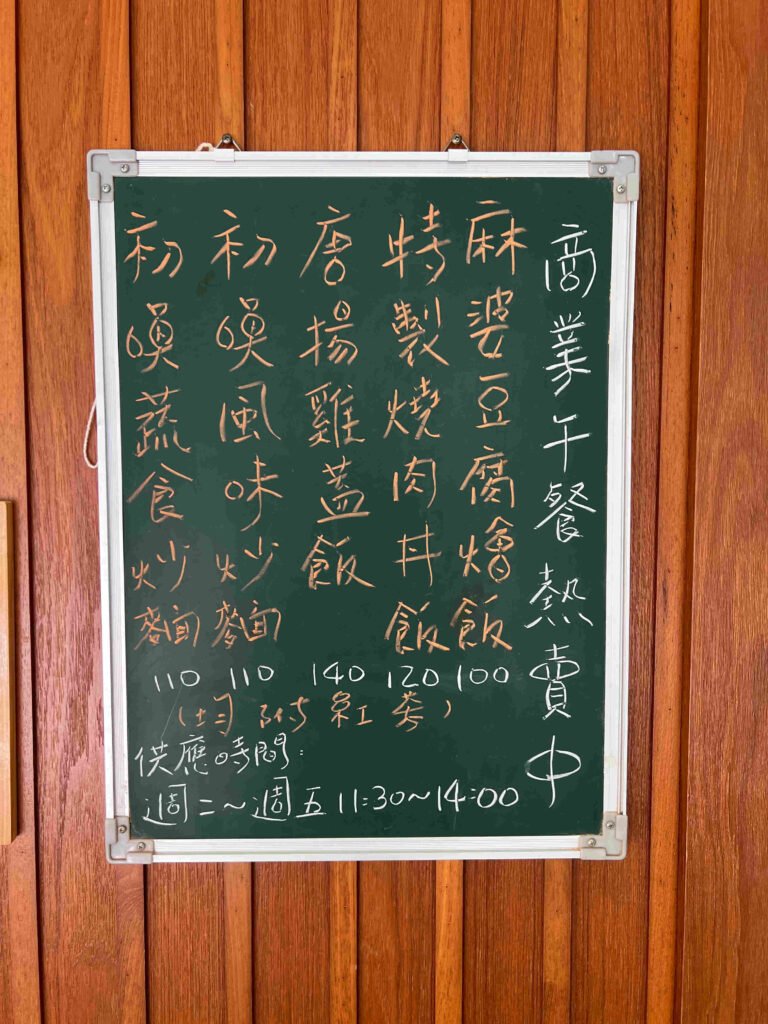 商業午餐熱賣中
麻婆豆腐燴飯 100
特製燒肉丼飯 120
唐揚雞蓋飯 140
初喚風味炒麵 110
初喚蔬食炒麵 110
(均附紅茶)
供應時間:
週二~週五 11:30~14:00